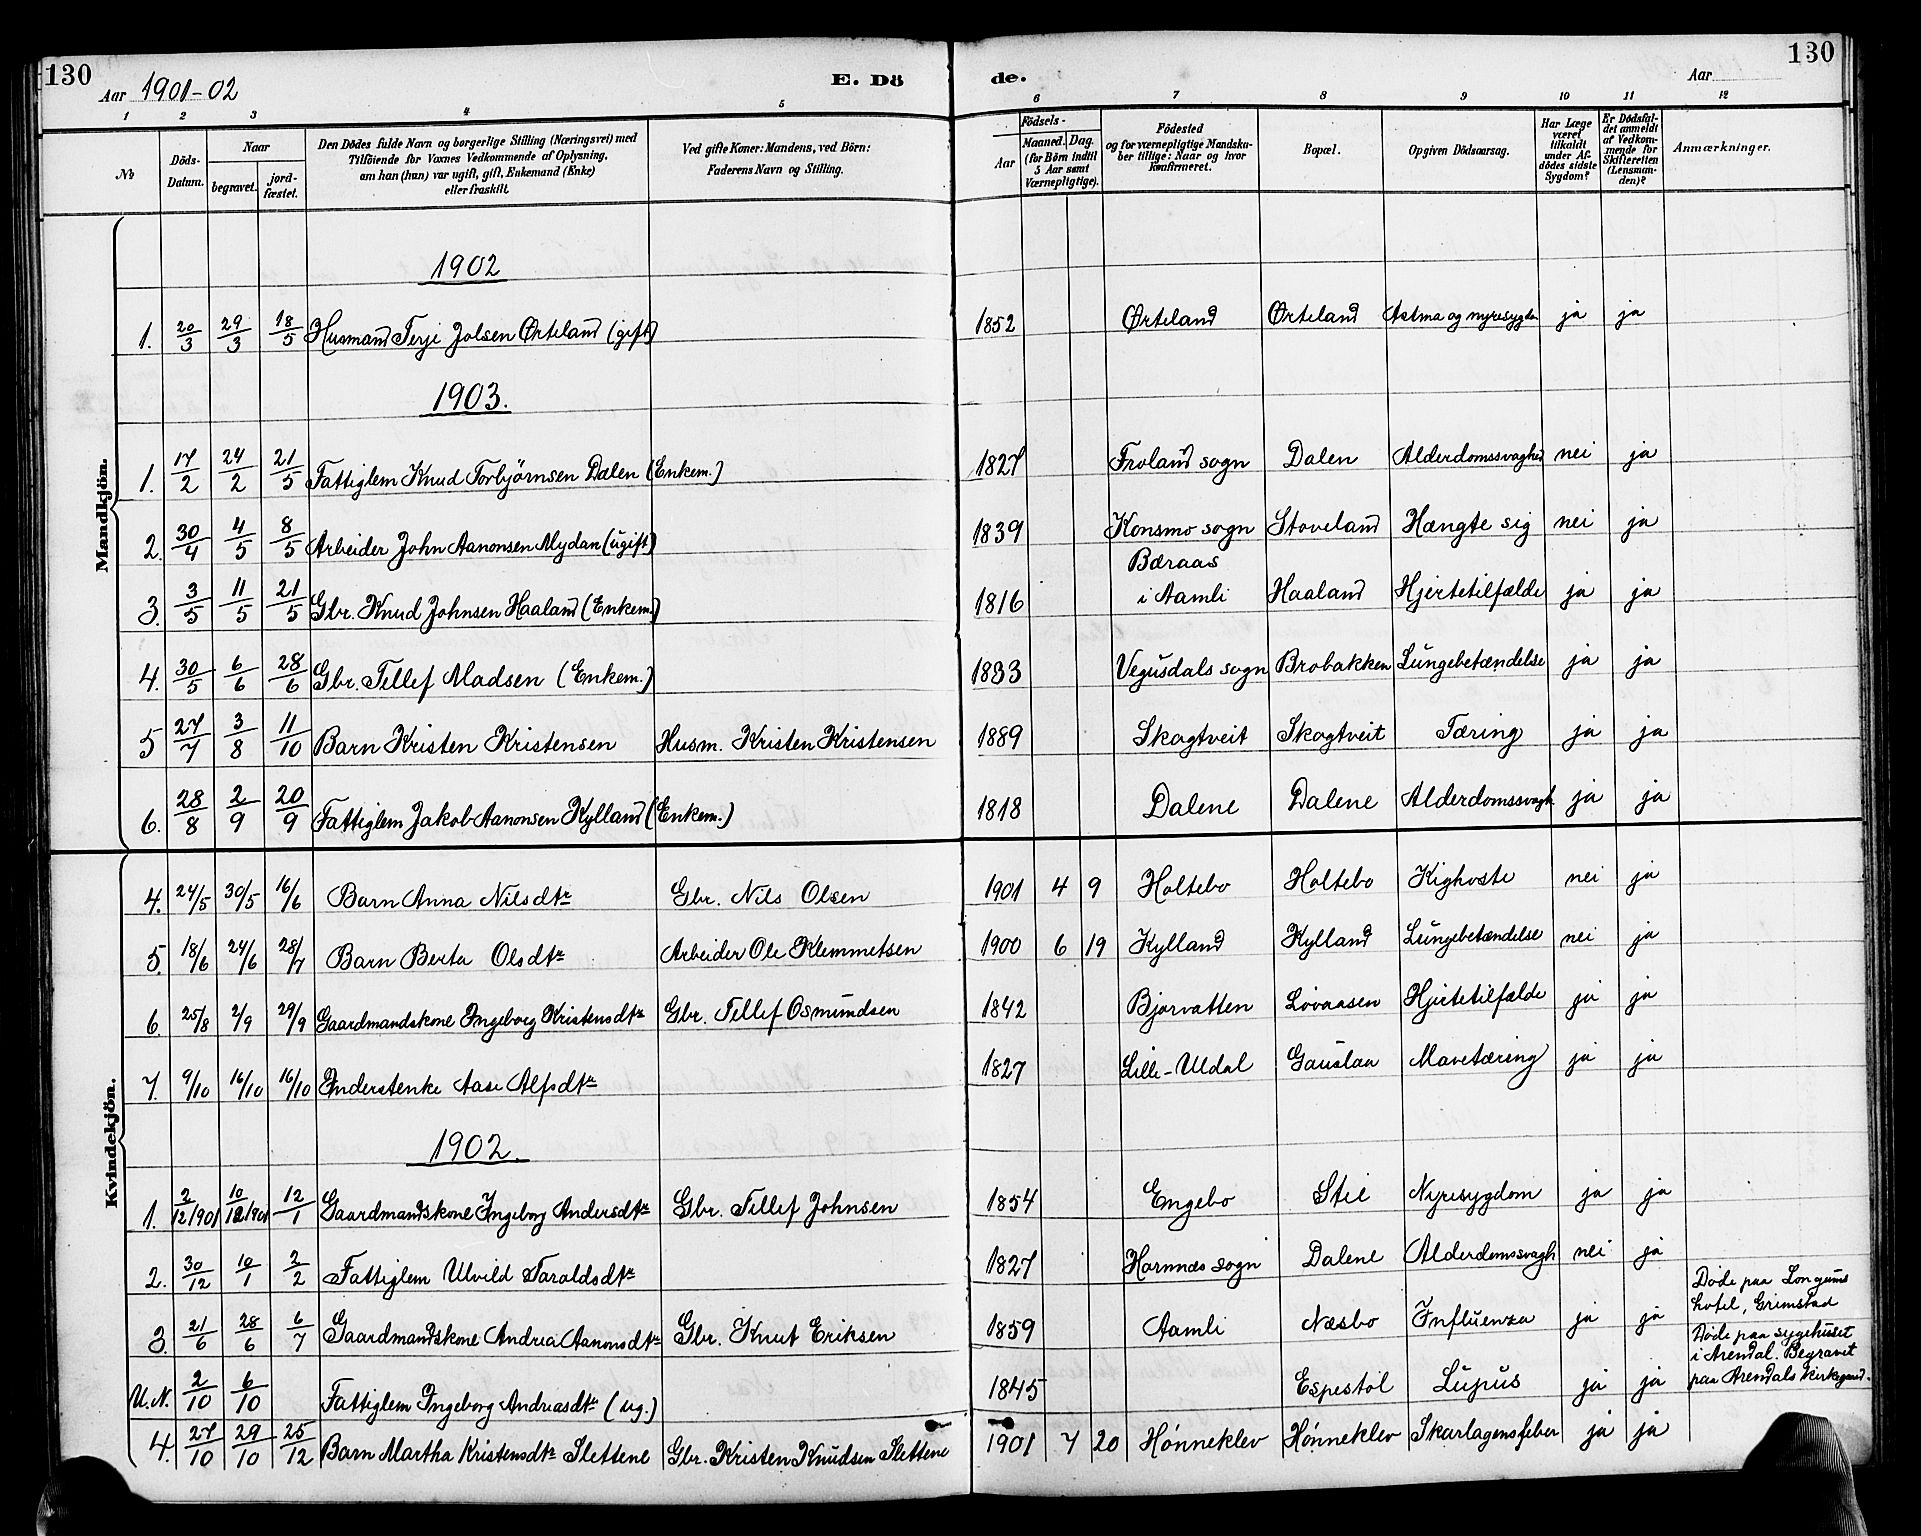 130
130
Aar 1901-02
E. Dö
de.
Aar
1 2 3 4 5 6 7 8 9 10 11 12
No
Döds-Datum.
Naar
begravet.
jord-fæstet.
Den Dödes fulde Navn og borgerlige Stilling (Næringsvei) med
Tilföiende for Voxnes Vedkommende af Oplysning,
om han (hun) var ugift, gift, Enkemand (Enke)
eller fraskilt.
Ved gifte Koner: Mandens, ved Börn:
Faderens Navn og Stilling.
Födsels-
Aar
Maaned. Dag.
(for Börn indtil
5 Aar samt
Værnepligtige).
Födested
og for værnepligtige Mandska-
ber tillige: Naar og hvor
konfirmeret.
Bopæl.
Opgiven Dödsaarsag.
Har Læge
været
tilkaldt
under Af-
dödes sidste
Sygdom?
Er Dödsfal-
det anmeldt
af Vedkom-
mende for
Skifteretten
(Lensman-
den)?
Anmærkninger.
Mandkjön.
1902
1. 20/3 29/3 18/5 Husmand Terje Jolsen Ørteland (gift) 1852 Ørteland Ørteland Astma og nyresygdom ja ja
1903.
1. 17/2 24/2 21/5 Fattiglem Knud Torbjørnsen Dalen (Enkem.) 1827 Froland sogn Dalen Alderdomssvaghed nei ja
2. 30/4 4/5 8/5 Arbeider John Aanonsen Mydan (ugift) 1839 Konsmo sogn Stoveland Hængte sig nei ja
3. 3/5 11/5 21/5 Gbr. Knud Johnsen Haaland (Enkem.) 1816 Bæraas i Aamli Haaland Hjertetilfælde ja ja
4. 30/5 6/6 28/6 Gbr. Tellef Madsen (Enkem.) 1833 Vegusdals sogn Brobakken Lungebetændelse ja ja
5 27/7 3/8 11/10 Barn Kristen Kristensen Husm. Kristen Kristensen 1889 Skogtveit Skogtveit Tæring ja ja
6. 28/8 2/9 20/9 Fattiglem Jakob Aanonsen Kylland (Enkem.) 1818 Dalene Dalene Alderdomssvagh. ja ja
Kvindekjön.
4. 24/5 30/5 16/6 Barn Anna Nilsdtr Gbr. Nils Olsen 1901 4 9 Holtebo Holtebo Kighoste nei ja
5. 18/6 24/6 28/7 Barn Berta Olsdtr Arbeider Ole Klemmetsen 1900 6 19 Kylland Kylland Lungebetændelse nei ja
6 25/8 2/9 29/9 Gaardmandskone Ingeborg Kristensdtr Gbr. Tellef Osmundsen 1842 Bjorvatten Løvaasen Hjertetilfælde ja ja
7. 9/10 16/10 16/10 Inderstenke Aase Alfsdtr 1827 Lille-Uldal Gauslaa Mavetæring ja ja
1902.
1. 2/12 1901 10/12 1901 12/1 Gaardmandskone Ingeborg Andersdtr Gbr. Tellef Johnsen 1854 Engebo Stie Nyresygdom ja ja
2. 30/12 10/1 2/2 Fattiglem Ulvild Taraldsdtr 1827 Hornnes sogn Dalene Alderdomssvagh nei ja
3. 21/6 28/6 6/7 Gaardmandskone Andrea Aanonsdtr Gbr. Knut Eriksen 1859 Aamli Næsbo Influenza ja ja Døde paa Longums hotel, Grimstad
U.N. 2/10 6/10 Fattiglem Ingeborg Andreasdtr (ug.) 1845 Espestøl Lupus ja ja Døde paa sygehuset i Arendal. Begravet paa Arendals kirkegaard.
4. 27/10 29/10 25/12 Barn Martha Kristensdtr Slettene Gbr. Kristen Knudsen Slettene 1901 7 20 Hønneklev Hønneklev Skarlagensfeber ja ja